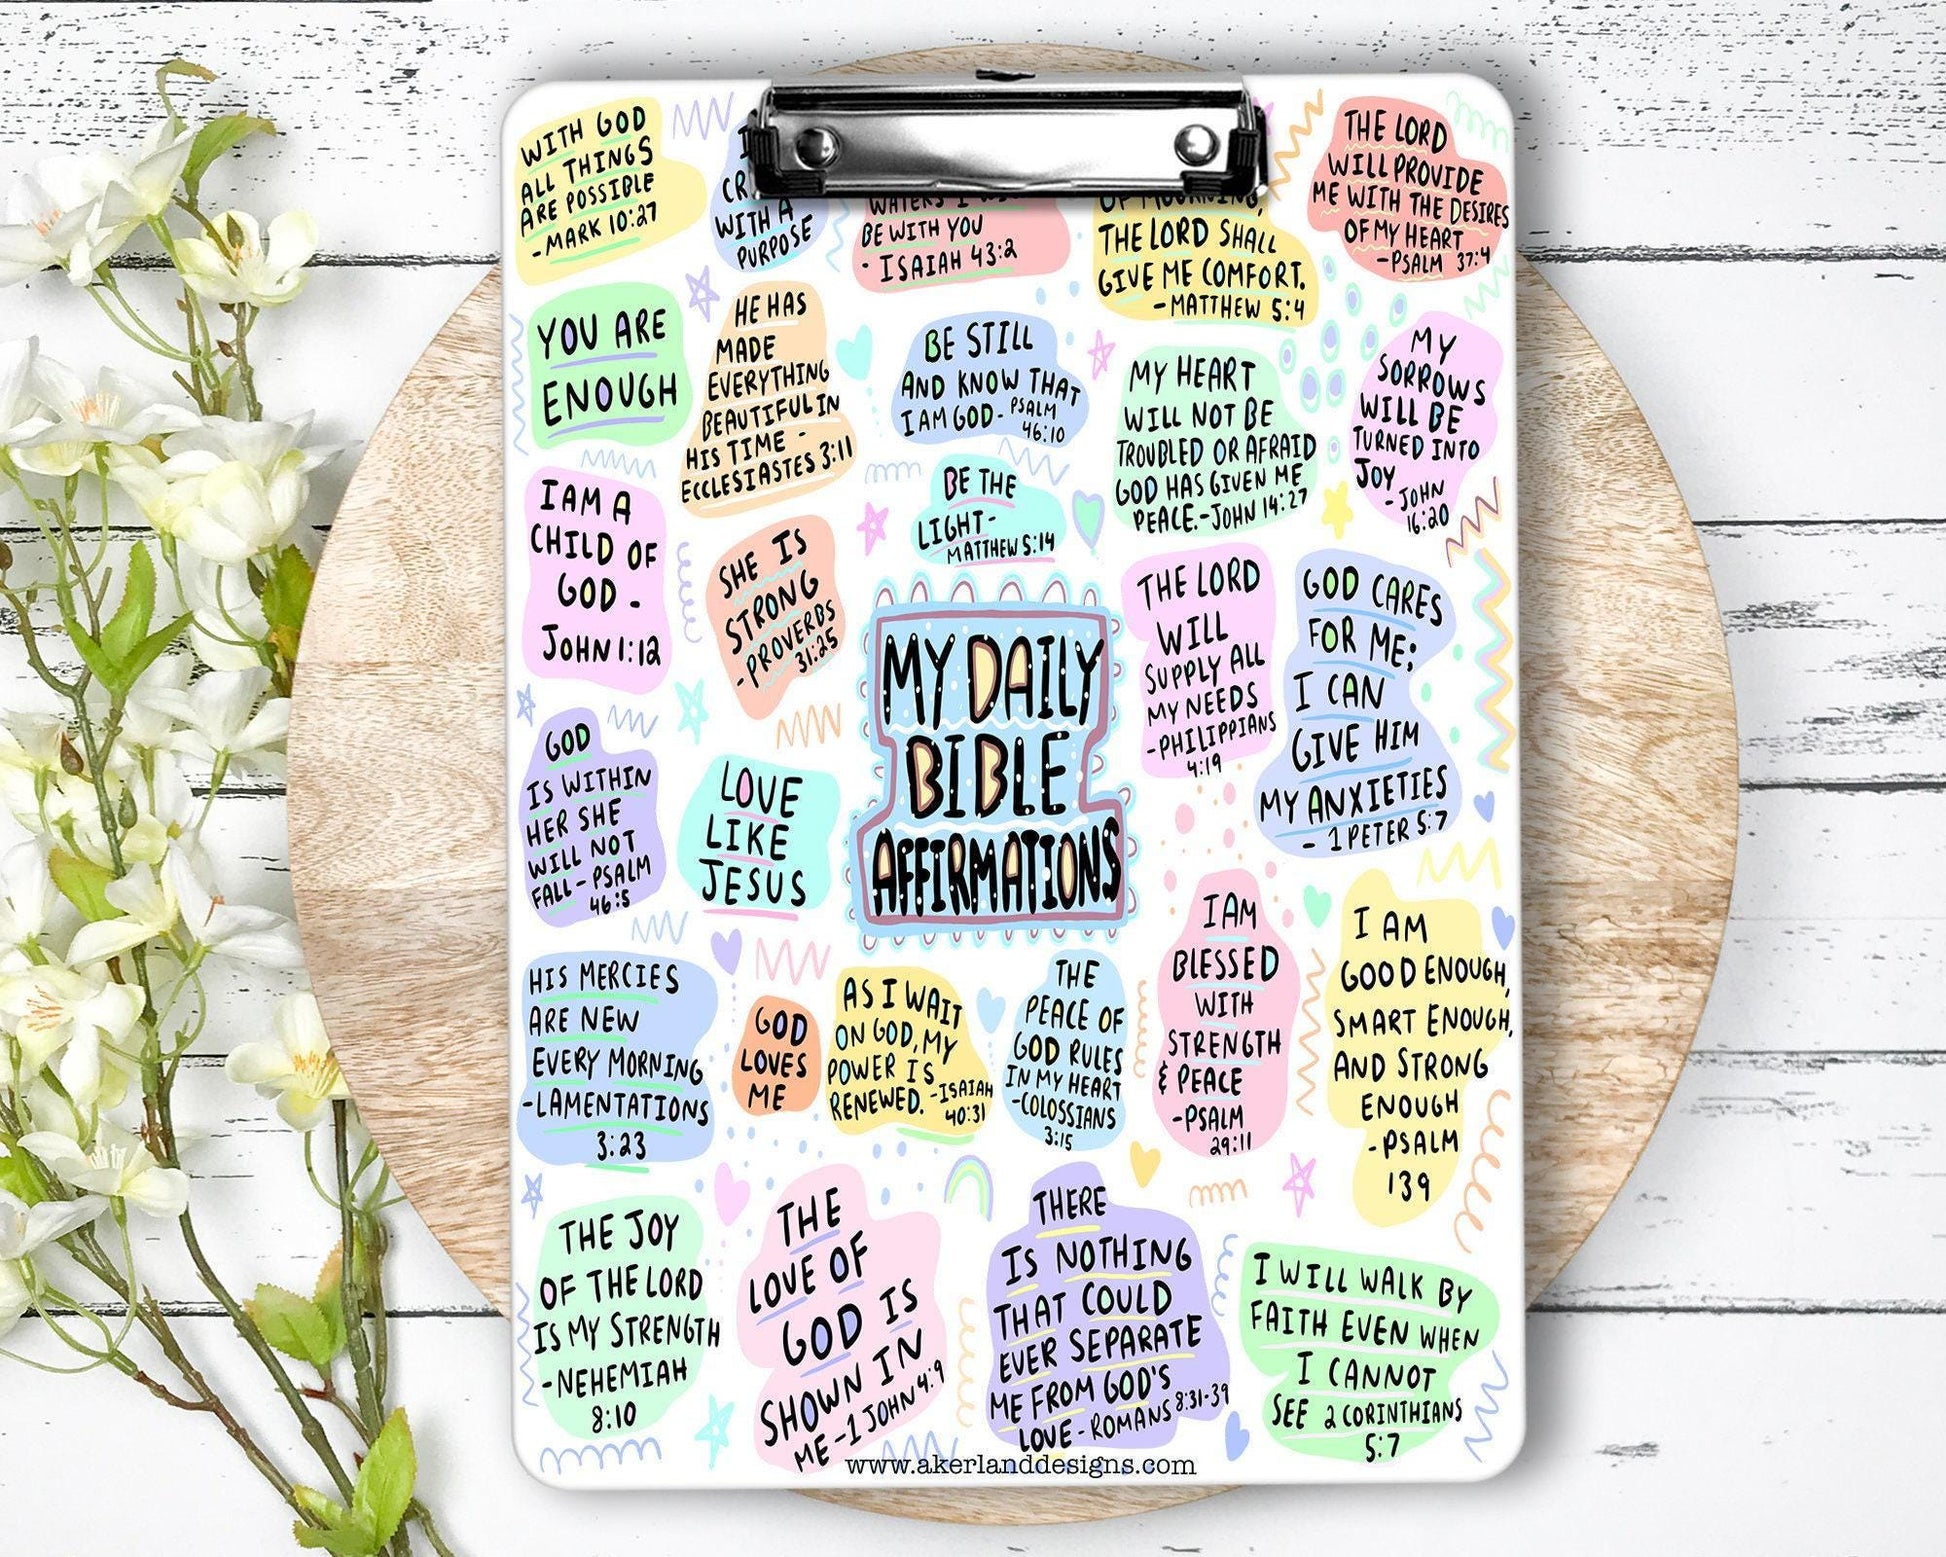 WITH GOD
ALL THINGS
ARE POSSIBLE
-MARK 10:27
WITH A
PURPOSE
BE WITH YOU
- ISAIAH 43:2
OF MOURNING,
THE LORD SHALL
GIVE ME COMFORT.
-MATTHEW 5:4
THE LORD
WILL PROVIDE
ME WITH THE DESIRES
OF MY HEART
-PSALM 37:4
YOU ARE
ENOUGH
HE HAS
MADE
EVERYTHING
BEAUTIFUL IN
HIS TIME -
ECCLESIASTES 3:11
BE STILL
AND KNOW THAT
I AM GOD- PSALM
46:10
MY HEART
WILL NOT BE
TROUBLED OR AFRAID
GOD HAS GIVEN ME
PEACE.-JOHN 14:27
MY
SORROWS
WILL BE
TURNED INTO
JOY
-JOHN
16:20
I AM A
CHILD OF
GOD -
JOHN 1:12
SHE IS
STRONG
-PROVERBS
31:25
BE THE
LIGHT-
MATTHEW 5:14
MY DAILY
BIBLE
AFFIRMATIONS
THE LORD
WILL
SUPPLY ALL
MY NEEDS
-PHILIPPIANS
4:19
GOD CARES
FOR ME;
I CAN
GIVE HIM
MY ANXIETIES
- 1 PETER 5:7
GOD
IS WITHIN
HER SHE
WILL NOT
FALL-PSALM
46:5
LOVE
LIKE
JESUS
HIS MERCIES
ARE NEW
EVERY MORNING
-LAMENTATIONS
3:23
GOD
LOVES
ME
AS I WAIT
ON GOD, MY
POWER IS
RENEWED. -ISAIAH
40:31
THE
PEACE OF
GOD RULES
IN MY HEART
-COLOSSIANS
3:15
I AM
BLESSED
WITH
STRENGTH
& PEACE
-PSALM
29:11
I AM
GOOD ENOUGH,
SMART ENOUGH,
AND STRONG
ENOUGH
-PSALM
139
THE JOY
OF THE LORD
IS MY STRENGTH
-NEHEMIAH
8:10
THE
LOVE OF
GOD IS
SHOWN IN
ME -1 JOHN 4:9
THERE
IS NOTHING
THAT COULD
EVER SEPARATE
ME FROM GOD'S
LOVE - ROMANS 8:31-39
I WILL WALK BY
FAITH EVEN WHEN
I CANNOT
SEE 2 CORINTHIANS
5:7
www.akerlanddesigns.com